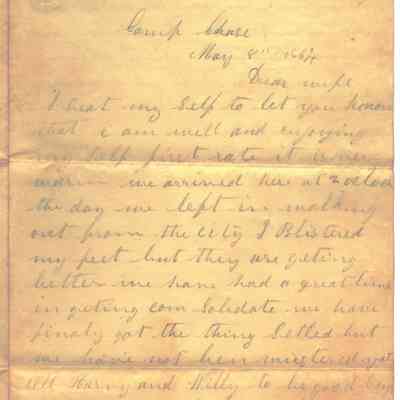 Camp Chase
May 8th 1864
Dear wife
I seat my self to let you know
that i am well and enjoying
my self first rate it is very
warm we arrived here at 2 oclock
the day we left in walking
out from the city I Blistered
my feet but they are geting
better we have had a great time
in geting com Solodate we have
finaly got the thing Setled but
we have not ben mustered yet
tell Harry and Willy to be good boys